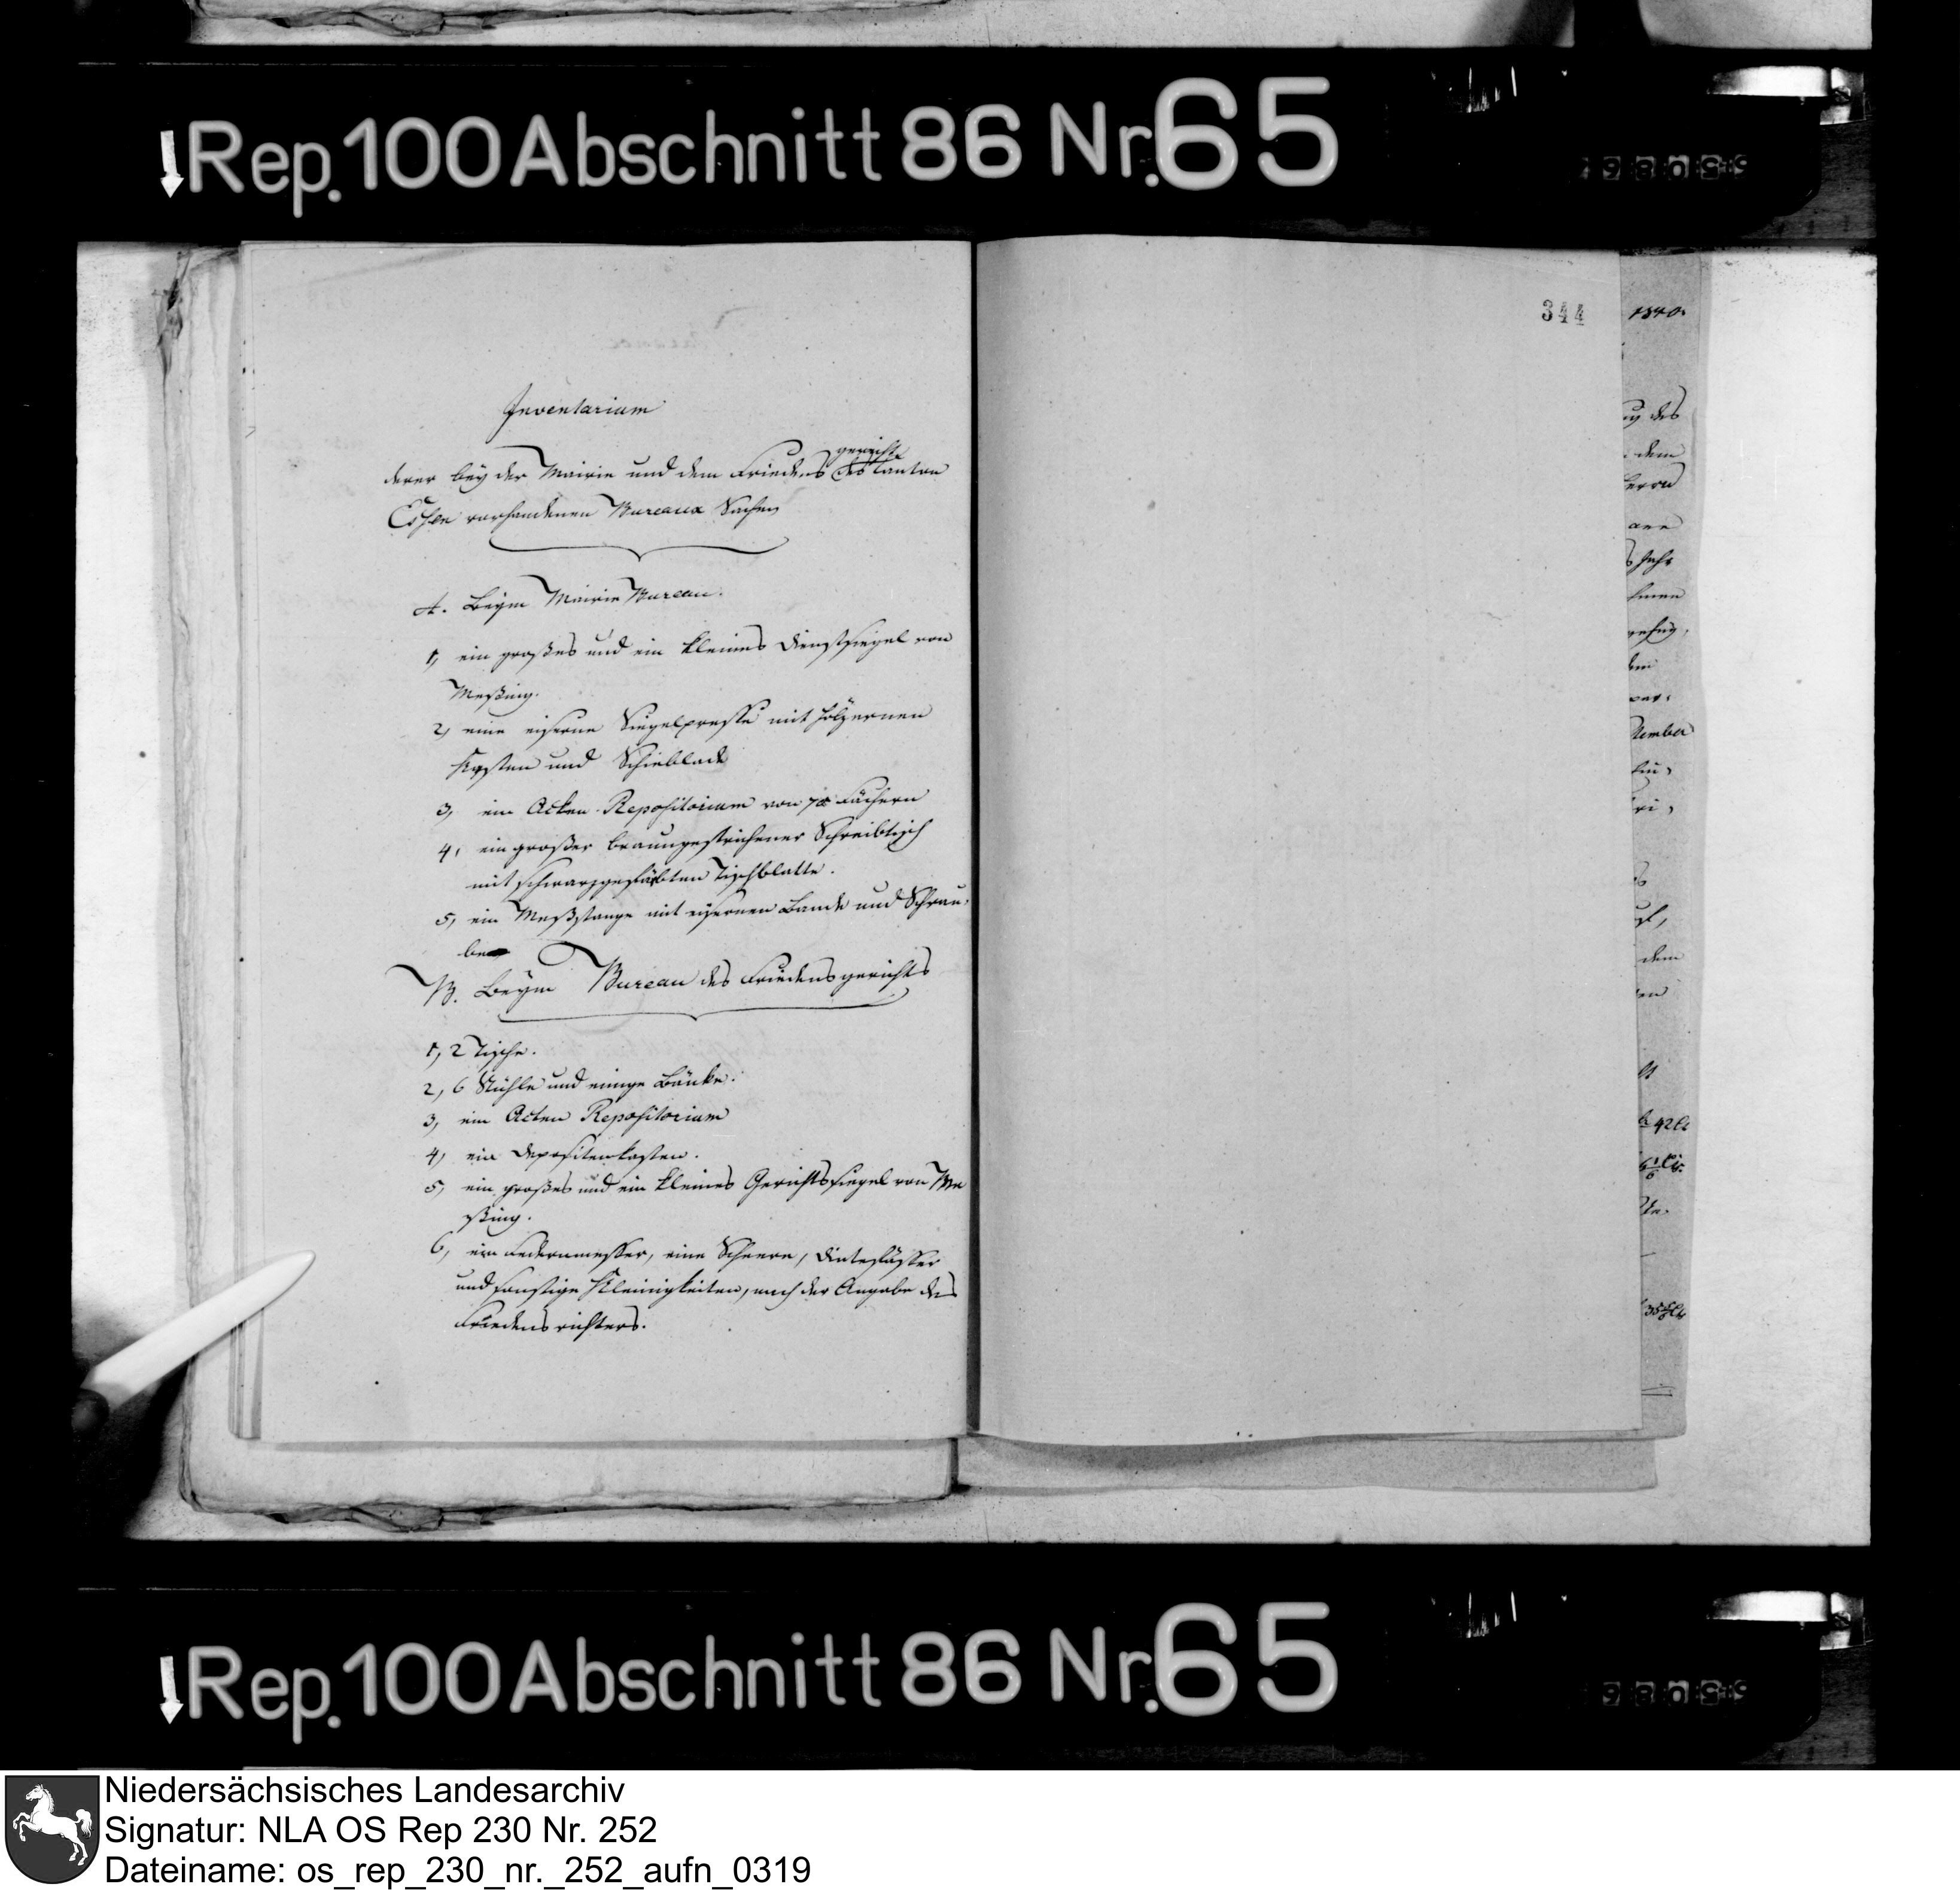 Rep. 100 Abschnitt 86 Nr. 65
344
1840.
Inventarium
gerichte
derer bey der Mairie und dem Friedens des Canton
Essen vorhandenen Bureaux Sachen
A. Beym Mairie Bureau.
1, ein großes und ein kleines Dienstsiegel von
Meßing.
2, eine eiserne Siegelpresse mit hölzernen
Kasten und Schieblade
3, ein Acten-Repositorium von Fächern
4, ein großer braungestrichener Schreibtisch
mit schwarzgefärbten Tischblatte.
5, ein Meßstange mit eisernen Bande und Schrau-
be
B. Beym Bureau des Friedensgerichts
1, 2 Tische.
2, 6 Stühle und einige Bänke.
3, ein Acten Repositorium
4, ein Depositenkasten.
5, ein großes und ein kleines Gerichtssiegel von Me
ßing.
6, ein Federmesser, eine Scheere, Dintefässer
und sonstige Kleinigkeiten, nach der Angabe des
Friedensrichters.
des
dem
Jahr
dem
Rep. 100 Abschnitt 86 Nr. 65
Niedersächsisches Landesarchiv
Signatur: NLA OS Rep 230 Nr. 252
Dateiname: os_rep_230_nr._252_aufn_0319